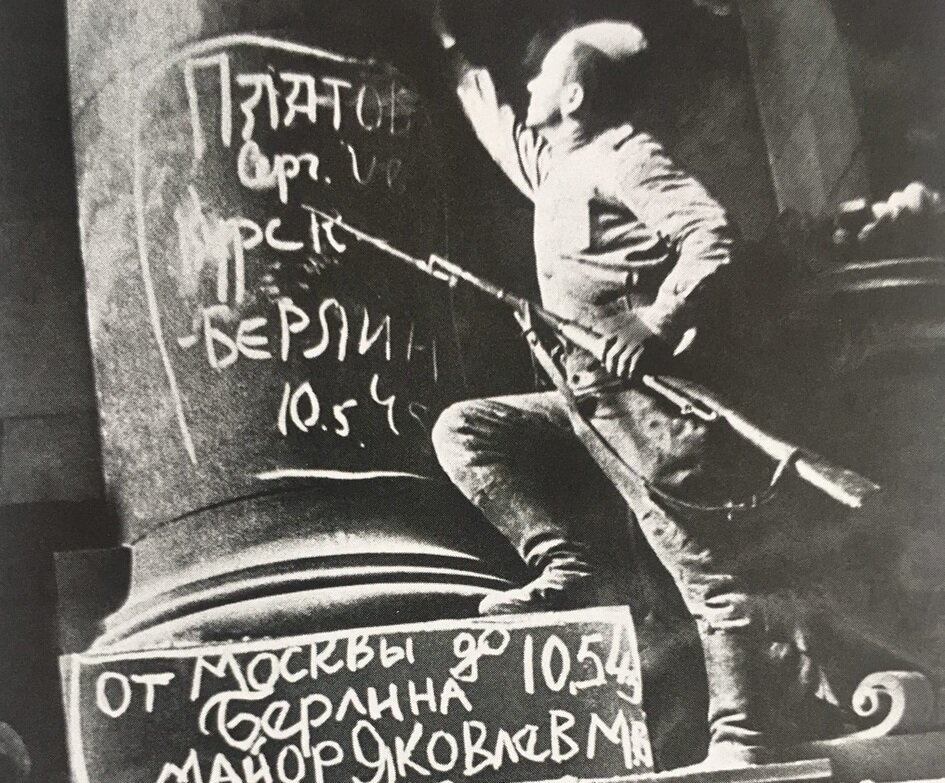 ПЛАТОВ
Серг.
Курск
-БЕРЛИН
10.5.4
ОТ МОСКВЫ до 10.5.45
БЕРЛИНА
МАЙОР ЯКОВЛЕВ М